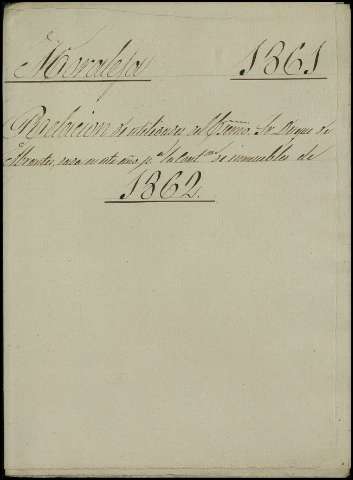 Moraleja 1861
Relacion de utilidades del Exmo. Sr. Duque de
Abrantes, para este año pa. la Cont.on de inmuebles de
1862.